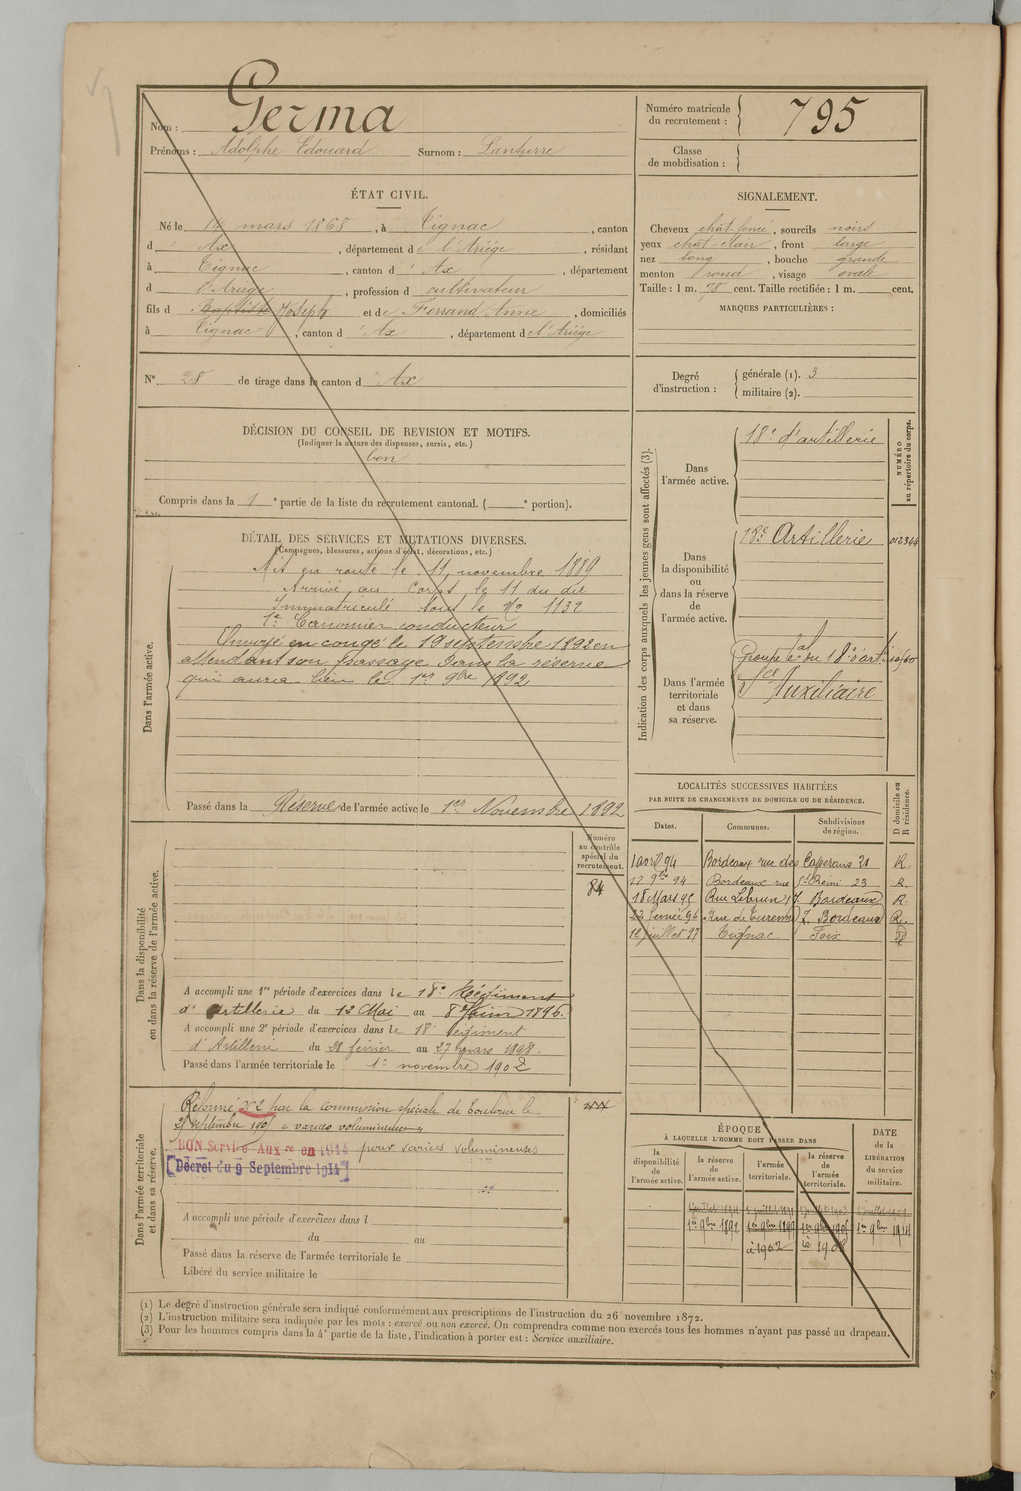 Nom : Germa
Prénoms : Adolphe Edouard Surnom : Lanterre
ÉTAT CIVIL.
Né le 14 mars 1868, à Tignac, canton
d' Ax, département de l'Ariège, résidant
à Tignac, canton d' Ax, département
d l'Ariège, profession d cultivateur
fils d Baptiste Joseph et de Ferrand Anne, domiciliés
à Tignac, canton d' Ax, département de l'Ariège
N° 28 de tirage dans le canton d' Ax
DÉCISION DU CONSEIL DE REVISION ET MOTIFS.
(Indiquer la nature des dispenses, sursis, etc.)
bon
Compris dans la 1e partie de la liste du recrutement cantonal. ( e portion).
DÉTAIL DES SERVICES ET MUTATIONS DIVERSES.
(Campagnes, blessures, actions d'éclat, décorations, etc.)
Dans l'armée active.
Mis en route le 11 novembre 1889
Arrivé au Corps le 11 du dit
Immatriculé sous le No 1132
1er Canonnier conducteur
Envoyé en congé le 19 septembre 1892 en
attendant son passage dans la réserve
qui aura lieu le 1er 9bre 1892
Passé dans la Réserve de l'armée active le 1er Novembre 1892
Numéro
au contrôle
spécial du
recrutement.
84
Dans la disponibilité
ou dans la réserve de l'armée active.
A accompli une 1re période d'exercices dans le 18e Régiment
d' Artillerie du 12 Mai au 8 Juin 1895.
A accompli une 2e période d'exercices dans le 18e régiment
d'Artillerie du 28 février au 27 mars 1898.
Passé dans l'armée territoriale le 1er novembre 1902
Dans l'armée territoriale
et dans sa réserve.
Réformé N° 2 par la commission spéciale de Toulouse le
septembre « varices volumineuses »
BON Service Auxre en 1914 pour varices volumineuses
[Décret du 9 Septembre 1914]
A accompli une période d'exercices dans l
du au
Passé dans la réserve de l'armée territoriale le
Libéré du service militaire le
Numéro matricule
du recrutement : 795
Classe
de mobilisation :
SIGNALEMENT.
Cheveux chat. foncé, sourcils noirs
yeux chat. clair, front large
nez long, bouche grande
menton rond, visage ovale
Taille : 1 m. 78 cent. Taille rectifiée : 1 m. cent.
MARQUES PARTICULIÈRES :
Degré
d'instruction :
générale (1). 3
militaire (2).
Indication des corps auxquels les jeunes gens sont affectés (3).
NUMÉRO
au répertoire du corps.
Dans
l'armée active.
18e d'artillerie
Dans
la disponibilité
ou
dans la réserve
de
l'armée active.
18e Artillerie 012344
Dans l'armée
territoriale
et dans
sa réserve.
Groupe tal du 18e d'art
Sce Auxiliaire
LOCALITÉS SUCCESSIVES HABITÉES
PAR SUITE DE CHANGEMENTS DE DOMICILE OU DE RÉSIDENCE.
Dates. Communes. Subdivisions de région. D domicile ou R résidence.
1 avril 94 Bordeaux rue des Caperans 21 R.
17 9bre 94 Bordeaux rue St Rémi 23 R.
18 Mars 95 Rue Lebrun 17 Bordeaux R.
23 février 96 Rue de Turenne 7. Bordeaux R.
12 juillet 97 Tignac Foix D
ÉPOQUE
À LAQUELLE L'HOMME DOIT PASSER DANS
DATE
de la
LIBÉRATION
du service
militaire.
la
disponibilité
de
l'armée active.
la réserve
de
l'armée active.
l'armée
territoriale.
la réserve
de
l'armée
territoriale.
1er 9bre 1892 1er 9bre 1899 1er 9bre 1905 1er 9bre 1914
à 1902 à 1908
(1) Le degré d'instruction générale sera indiqué conformément aux prescriptions de l'instruction du 26 novembre 1872.
(2) L'instruction militaire sera indiquée par les mots : exercé ou non exercé. On comprendra comme non exercés tous les hommes n'ayant pas passé au drapeau.
(3) Pour les hommes compris dans la 4e partie de la liste, l'indication à porter est : Service auxiliaire.